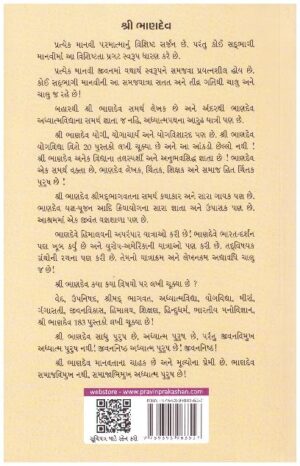 શ્રી ભાણદેવ
પ્રત્યેક માનવી પરમાત્માનું વિશિષ્ટ સર્જન છે. પરંતુ કોઈ સદ્ભાગી
માનવીમાં આ વિશિષ્ટતા પ્રગટ સ્વરૂપ ધારણ કરે છે.
પ્રત્યેક માનવી જીવનમાં યથાર્થ સ્વરૂપને સમજવા પ્રયત્નશીલ હોય છે.
કોઈ સદ્ભાગી માનવીની આ સમજયાત્રા સતત અને તીવ્ર ગતિથી ચાલુ અને
ચાલુ જ રહે છે!
બહારથી શ્રી ભાણદેવ સમર્થ લેખક છે અને અંદરથી ભાણદેવ
અધ્યાત્મવિદ્યાના સમર્થ જ્ઞાતા જ નહિ, અધ્યાત્મપથના આરૂઢ યાત્રી પણ છે.
શ્રી ભાણદેવ યોગી, યોગાચાર્ય અને યોગવિશારદ પણ છે. શ્રી ભાણદેવ
યોગવિદ્યા વિશે 20 પુસ્તકો લખી ચૂક્યા છે અને આ આંકડો છેલ્લો નથી !
શ્રી ભાણદેવ અનેક વિદ્યાના તલસ્પર્શી અને અનુભવસિદ્ધ જ્ઞાતા છે ! ભાણદેવ
એક સમર્થ વક્તા છે. ભાણદેવ લેખક, ચિંતક, શિક્ષક અને સમાજ હિત ચિંતક
પુરુષ છે !
શ્રી ભાણદેવ શ્રીમદ્ભાગવતના સમર્થ કથાકાર અને સારા ગાયક પણ છે.
ભાણદેવ યજ્ઞ-પૂજન આદિ ક્રિયાયોગના સારા જ્ઞાતા અને ઉપાસક પણ છે.
આશ્રમમાં એક જીવંત યજ્ઞશાળા પણ છે.
ભાણદેવે હિમાલયની અપરંપાર યાત્રાઓ કરી છે! ભાણદેવે ભારત-દર્શન
પણ ખૂબ કર્યું છે અને યુરોપ-અમેરિકાની યાત્રાઓ પણ કરી છે. તદ્વિષયક
ગ્રંથોની રચના પણ કરી છે. તેમનો યાત્રાક્રમ અને લેખનક્રમ અદ્યાવધિ ચાલુ
જ છે!
શ્રી ભાણદેવ ક્યા ક્યા વિષયો પર લખી ચૂક્યા છે ?
વેદ, ઉપનિષદ, શ્રીમદ્ ભાગવત, અધ્યાત્મવિદ્યા, યોગવિદ્યા, મીરાં,
ગંગાસતી, જીવનવિકાસ, હિમાલય, શિક્ષણ, હિન્દુધર્મ, ભારતીય મનોવિજ્ઞાન,
શ્રી ભાણદેવ 183 પુસ્તકો લખી ચૂક્યા છે !
શ્રી ભાણદેવ સાધુ પુરુષ છે, અધ્યાત્મ પુરુષ છે, પરંતુ જીવનવિમુખ
અધ્યાત્મ પુરુષ નથી! જીવનનિષ્ઠ અધ્યાત્મ પુરુષ છે ! જીવનનિષ્ઠ અધ્યાત્મ પુરુષ છે!
શ્રી ભાણદેવ માનવતાના ચાહક છે અને મૂલ્યોના પ્રેમી છે. ભાણદેવ
સમાજવિમુખ નથી, સમાજાભિમુખ અધ્યાત્મ પુરુષ છે!
webstore - www.pravinprakashan.com
સૂચિપત્ર માટે સ્કેન કરો